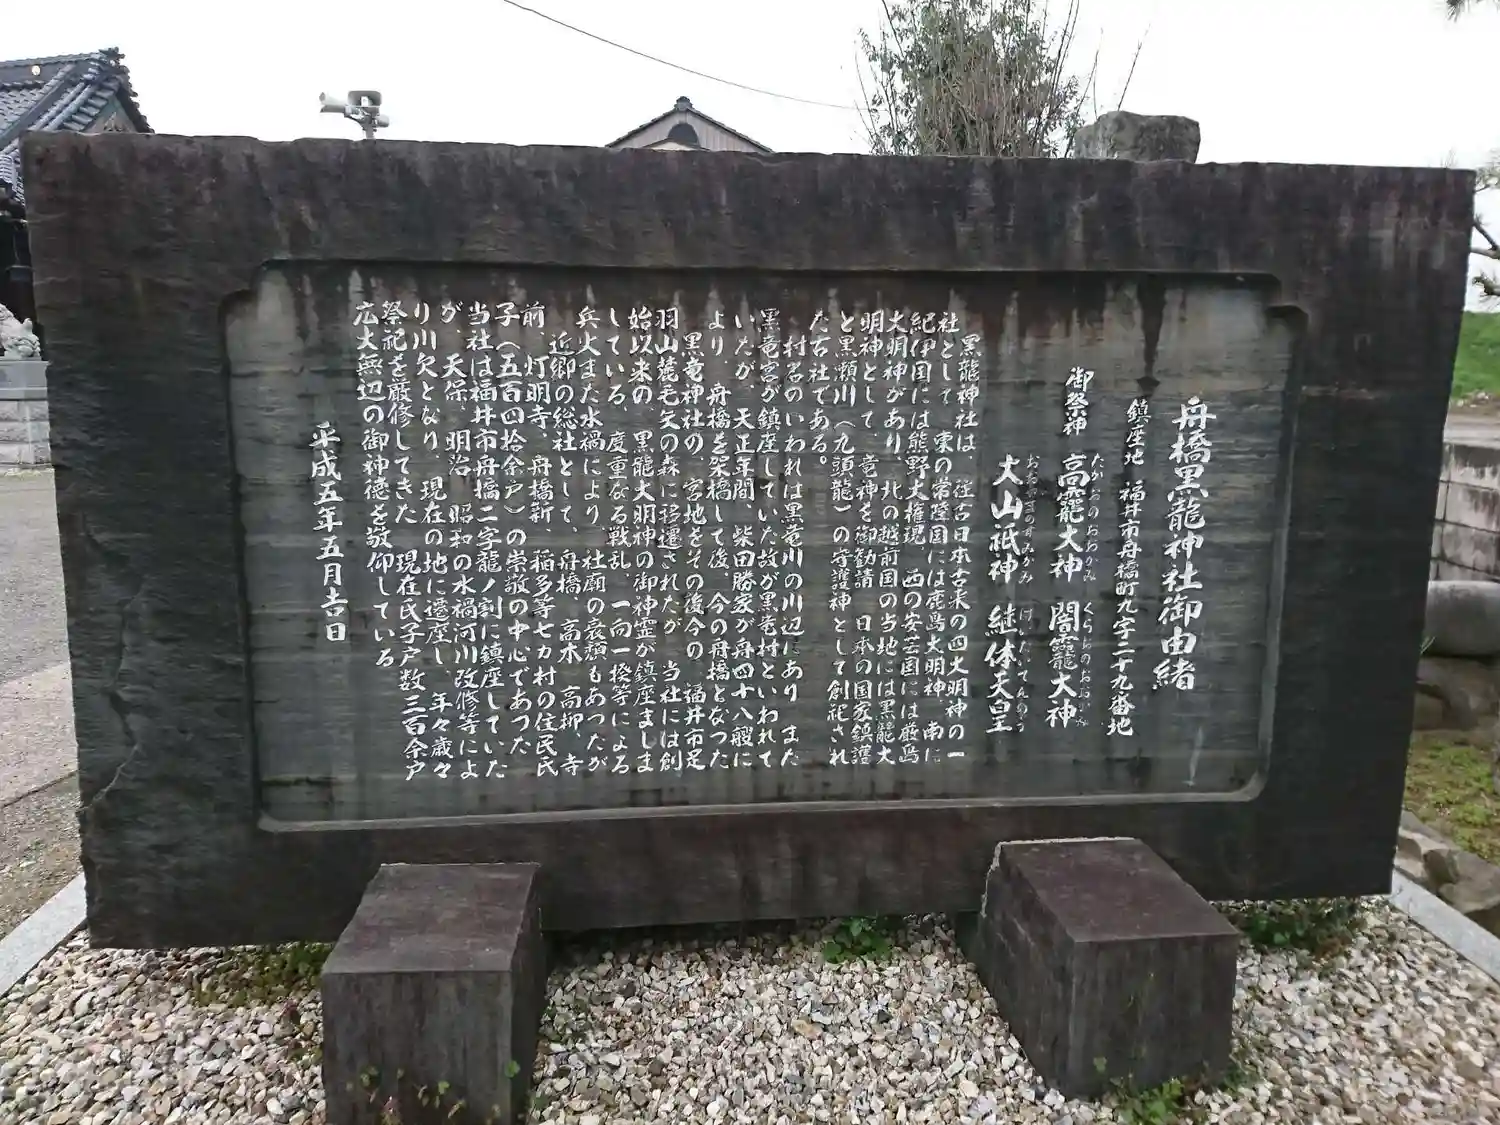 舟橋黒龍神社御由緒
鎮座地　福井市舟橋町九字二十九番地
御祭神　高龗大神　闇龗大神
たかおのおおかみ　くらおのおおかみ
大山祇神　継体天皇
おおやまのすみかみ　けいたいてんのう
黒龍神社は、往古日本古来の四大明神の一
社として、東の常陸国には鹿島大明神、南に
紀伊国には熊野大権現、西の安芸国には厳島
大明神があり、北の越前国の当地には黒龍大
明神として、竜神を御勧請　日本の国家鎮護
と黒瀬川（九頭龍）の守護神として創祀され
た古社である。
村名のいわれは黒竜川の川辺にあり　また
黒竜宮が鎮座していた故が黒竜村といわれて
いたが、天正年間、柴田勝家が舟四十八艘に
より、舟橋を架橋して後、今の舟橋となった
黒竜神社の、宮地をその後今の、福井市足
羽山麓毛矢の森に移遷されたが、当社には創
始以来の、黒龍大明神の御神霊が鎮座ましま
している、度重なる戦乱、一向一揆等による
兵火また水禍により、社廟の衰頽もあつたが
近郷の総社として、舟橋、高木、高柳、寺
前、灯明寺、舟橋新、稲多等七カ村の住民氏
子（五百四拾余戸）の崇敬の中心であつた
当社は福井市舟橋二字龍ノ割に鎮座していた
が、天保、明治、昭和の水禍河川改修等によ
り川欠となり、現在の地に遷座し、年々歳々
祭祀を厳修してきた　現在氏子戸数三百余戸
広大無辺の御神徳を敬仰している
平成五年五月吉日